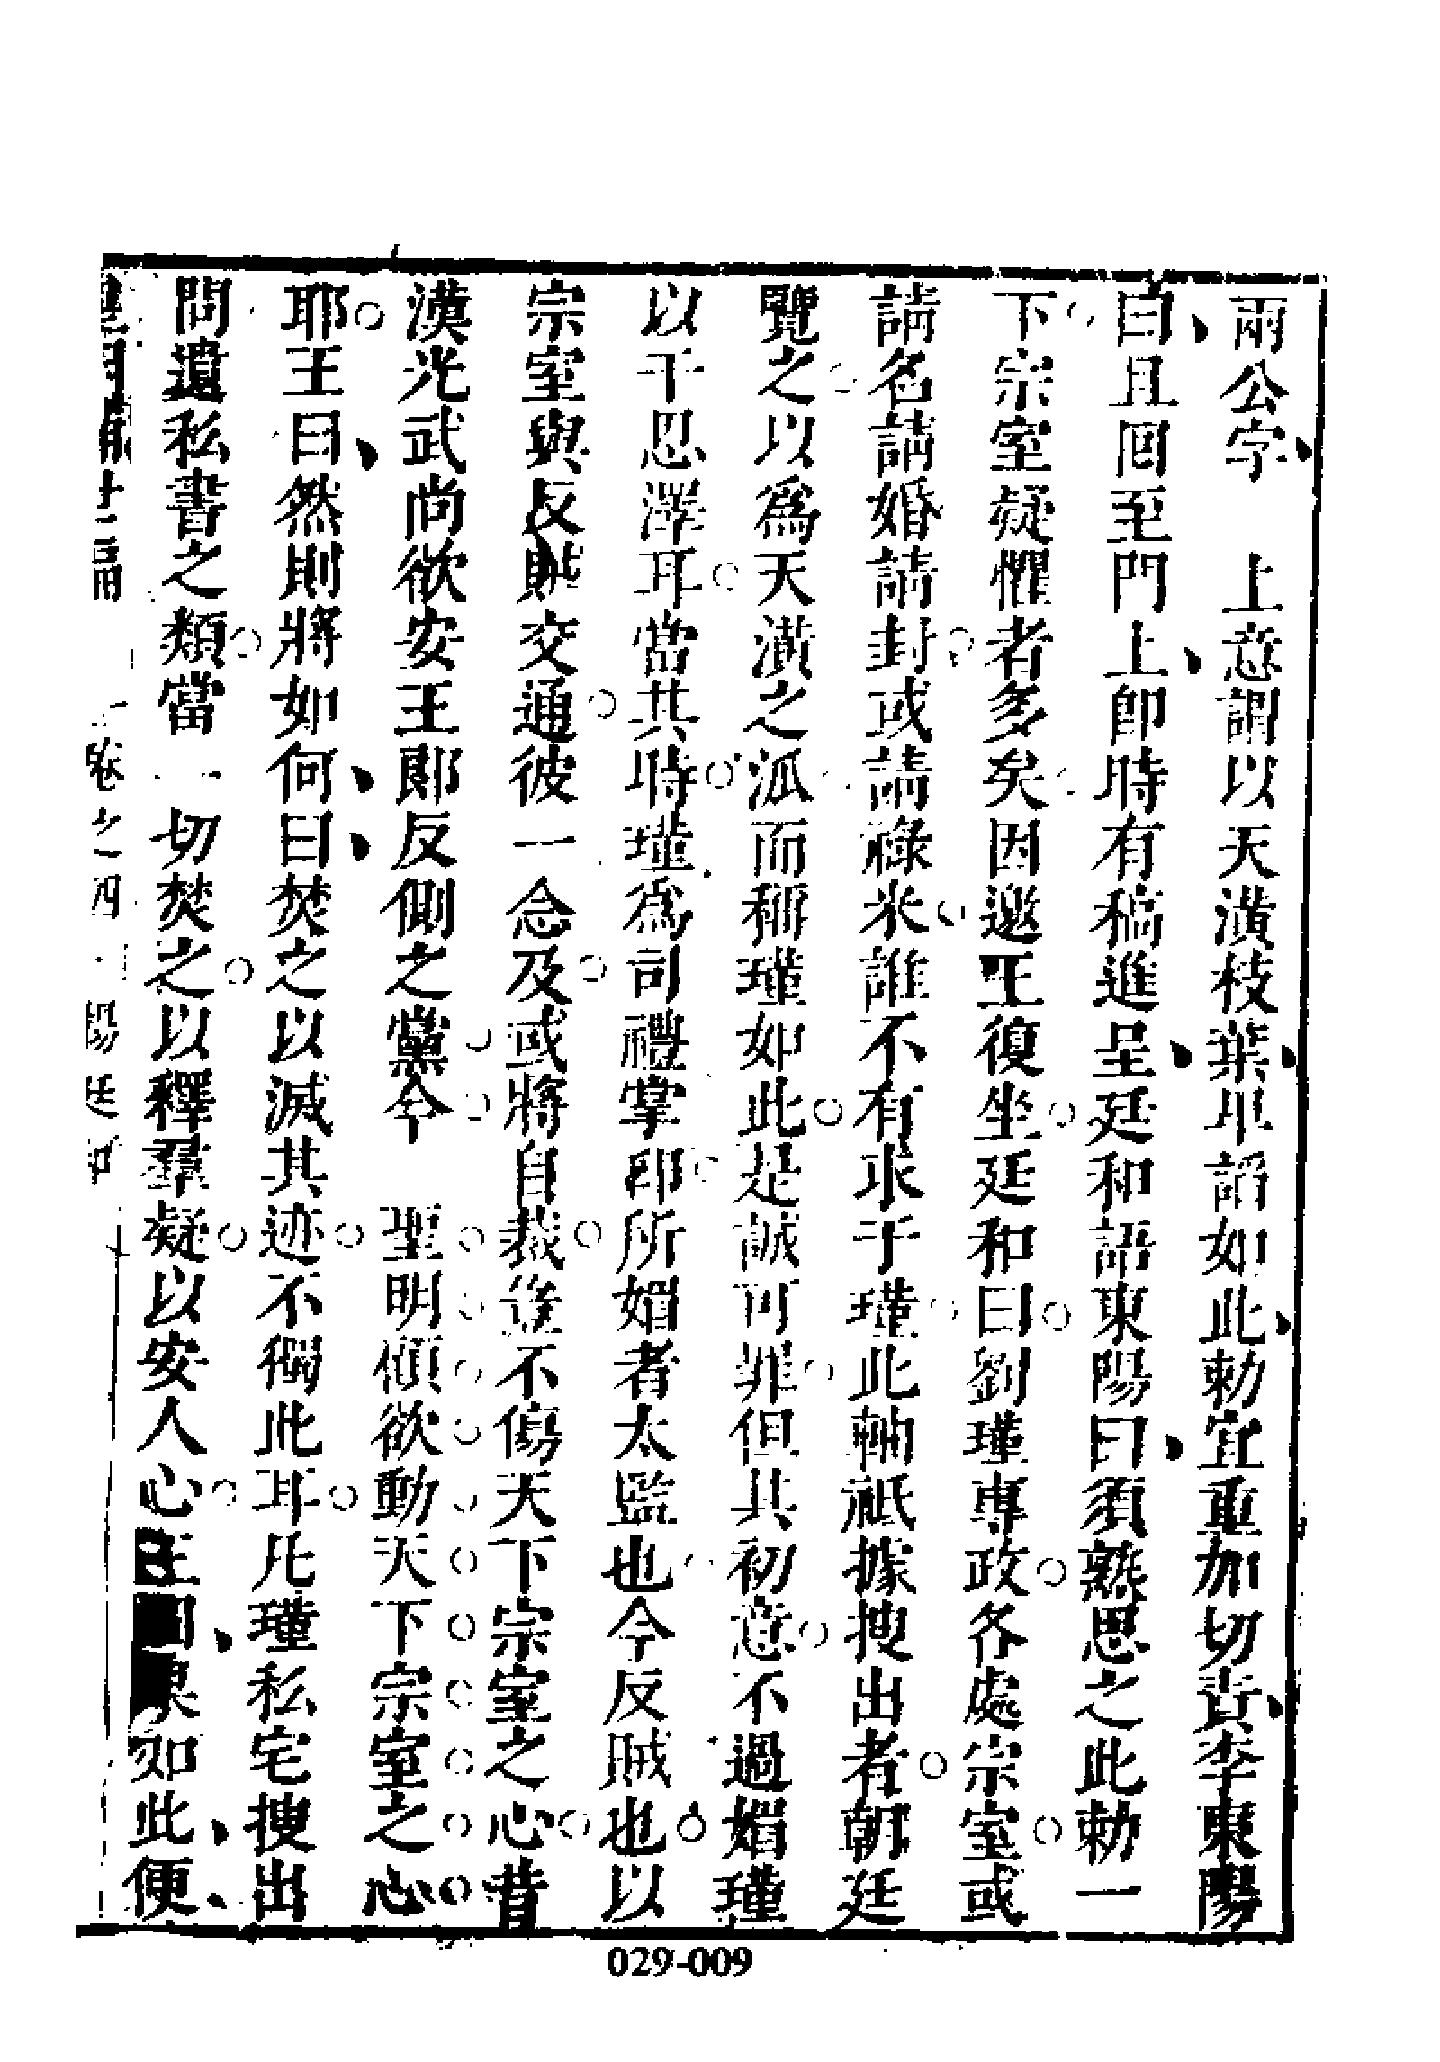 兩公字　上意謂以天潢枝葉卑謟如此勅宜重加切責李東陽
曰且囘至門上卽時有稿進呈廷和語東陽曰須熟思之此勅一
下宗室疑懼者多矣因邀王復坐廷和曰劉瑾專政各處宗室或
請名請婚請封或請祿米誰不有求于瑾此軸祗據搜出者朝廷
覽之以爲天潢之派而稱瑾如此是誠可罪但其初意不過媚瑾
以干恩澤耳當其時瑾爲司禮掌印所媚者太監也今反賊也以
宗室與反賊交通彼一念及或將自裁豈不傷天下宗室之心昔
漢光武尚欲安王郎反側之黨今　聖明顧欲動天下宗室之心
耶王曰然則將如何曰焚之以滅其迹不獨此耳凡瑾私宅搜出
問遺私書之類當一切焚之以釋羣疑以安人心王如此便
卷之四
楊廷和
029-009